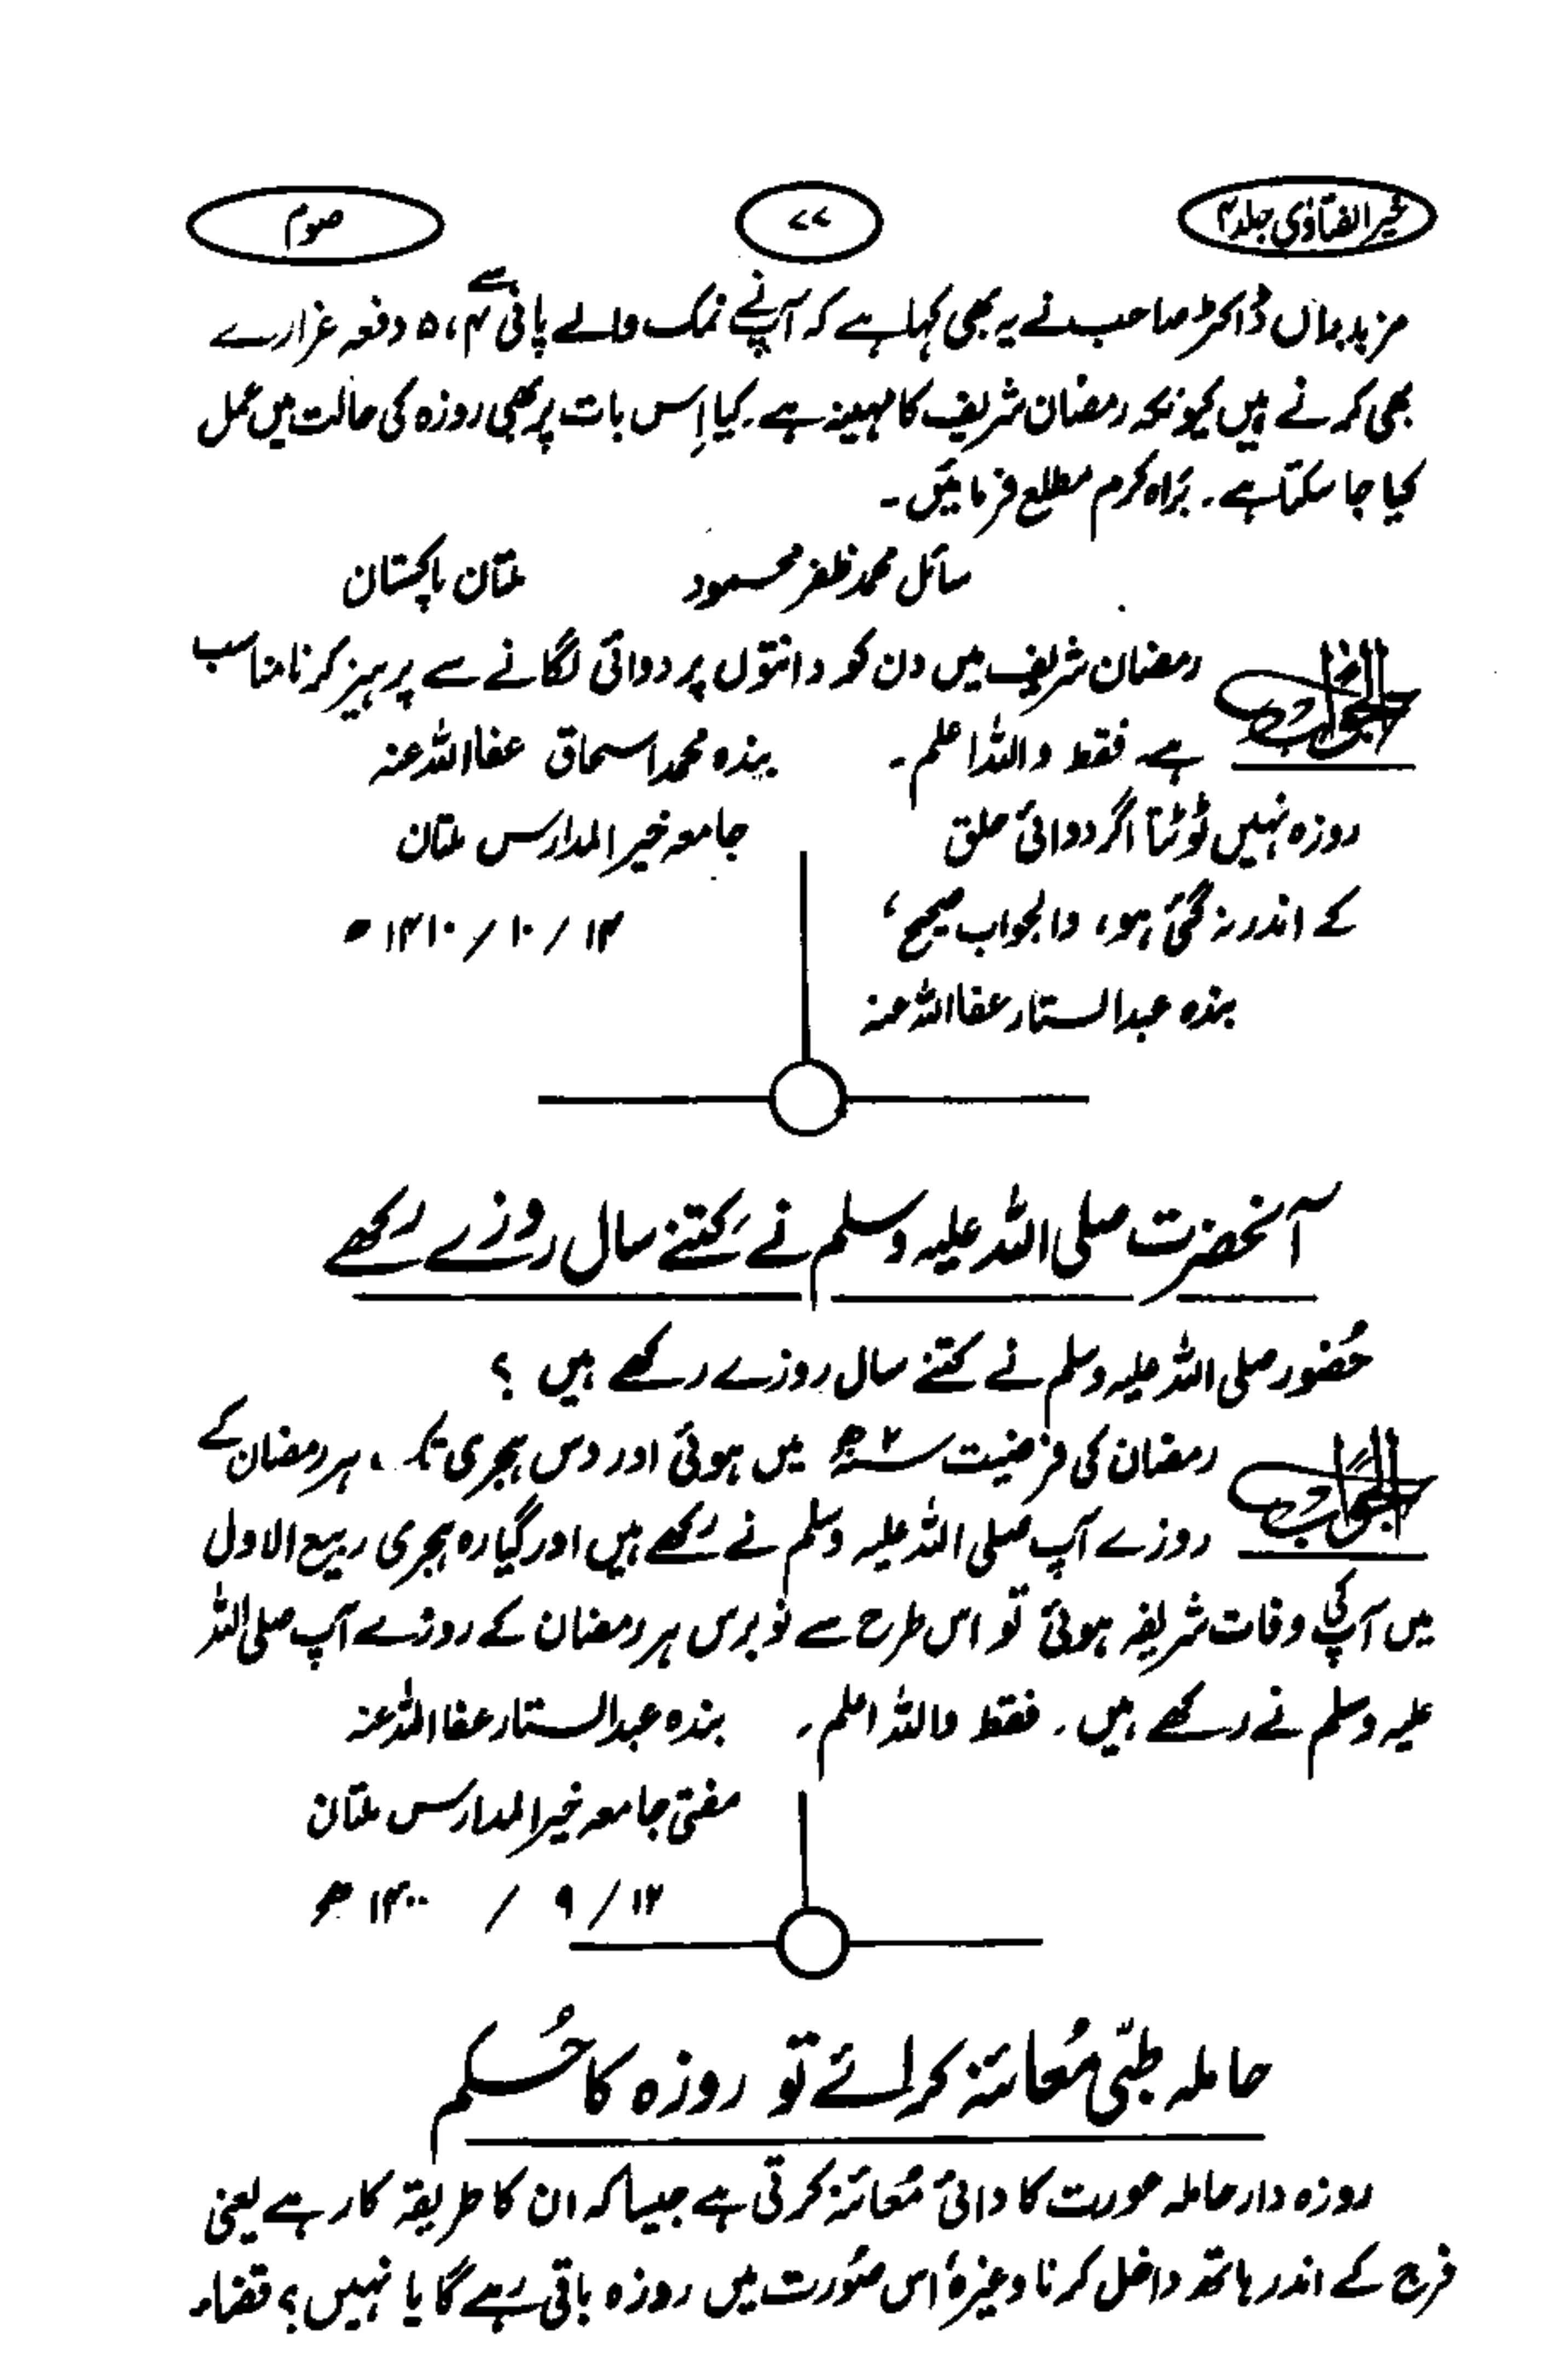 خیر الفتاویٰ جلد ۴
۷۷
صوم
مزید براں ڈاکٹر صاحب نے یہ بھی کہا ہے کہ آپ نے نمک والے پانی سے ۴، ۵ دفعہ غرارے
بھی کرنے ہیں کیونکہ رمضان شریف کا مہینہ ہے۔ کیا اِس بات پر بھی روزہ کی حالت میں عمل
کیا جا سکتا ہے۔ براہ کرم مطلع فرمائیں۔
سائل محمد ظفر محمود ملتان پاکستان
الجواب رمضان شریف میں دن کو دانتوں پر دوائی لگانے سے پرہیز کرنا مناسب
ہے۔ فقط واللہ اعلم۔ بندہ محمد اسحاق عفا اللہ عنہ
روزہ نہیں ٹوٹتا اگر دوائی حلق جامعہ خیر المدارس ملتان
کے اندر نہ گئی ہو، والجواب صحیح، ۱۴ / ۱۰ / ۱۴۱۰ ھ
بندہ عبدالستار عفا اللہ عنہ
آنحضرت صلی اللہ علیہ وسلم نے کتنے سال روزے رکھے
حُضور صلی اللہ علیہ وسلم نے کتنے سال روزے رکھے ہیں ؟
الجواب رمضان کی فرضیت ۲ھ میں ہوئی اور دس ہجری تک، ہر رمضان کے
روزے آپ صلی اللہ علیہ وسلم نے رکھے ہیں اور گیارہ ہجری ربیع الاول
میں آپ کی وفات شریفہ ہوئی تو اس طرح سے نو برس ہر رمضان کے روزے آپ صلی اللہ
علیہ وسلم نے رکھے ہیں۔ فقط واللہ اعلم۔ بندہ عبدالستار عفا اللہ عنہ
مفتی جامعہ خیر المدارس ملتان
۱۲ / ۹ / ۱۴۰۰ ھ
حاملہ طبّی مُعائنہ کرائے تو روزہ کا حُکم
روزہ دار حاملہ عورت کا دائی مُعائنہ کرتی ہے جیسا کہ ان کا طریقۂ کار ہے یعنی
فرج کے اندر ہاتھ داخل کرنا وغیرہ اُس صُورت میں روزہ باقی رہے گا یا نہیں؟ قضاء